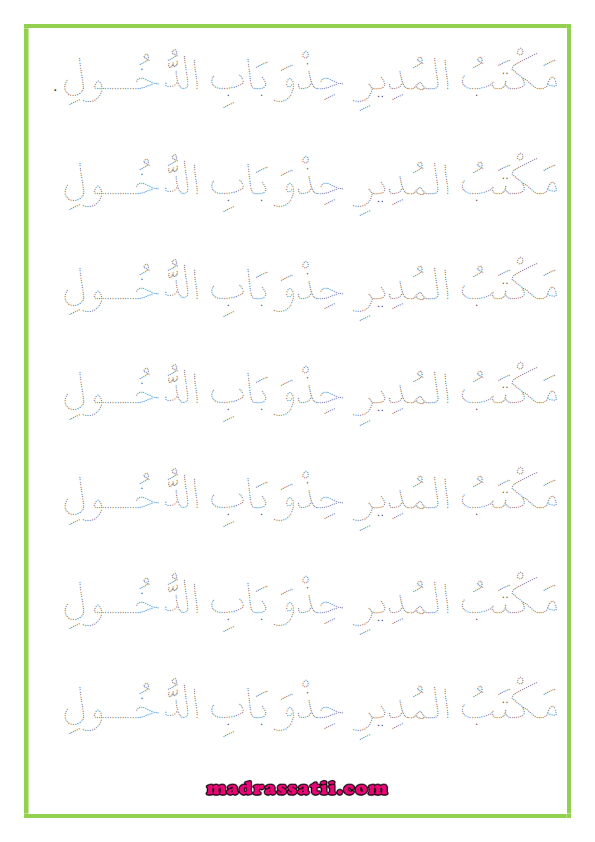 مَكْتَبُ المُدِيرِ حِذْوَ بَابِ الدُّخُـــولِ .
مَكْتَبُ المُدِيرِ حِذْوَ بَابِ الدُّخُـــولِ
مَكْتَبُ المُدِيرِ حِذْوَ بَابِ الدُّخُـــولِ
مَكْتَبُ المُدِيرِ حِذْوَ بَابِ الدُّخُـــولِ
مَكْتَبُ المُدِيرِ حِذْوَ بَابِ الدُّخُـــولِ
مَكْتَبُ المُدِيرِ حِذْوَ بَابِ الدُّخُـــولِ
مَكْتَبُ المُدِيرِ حِذْوَ بَابِ الدُّخُـــولِ
madrassatii.com